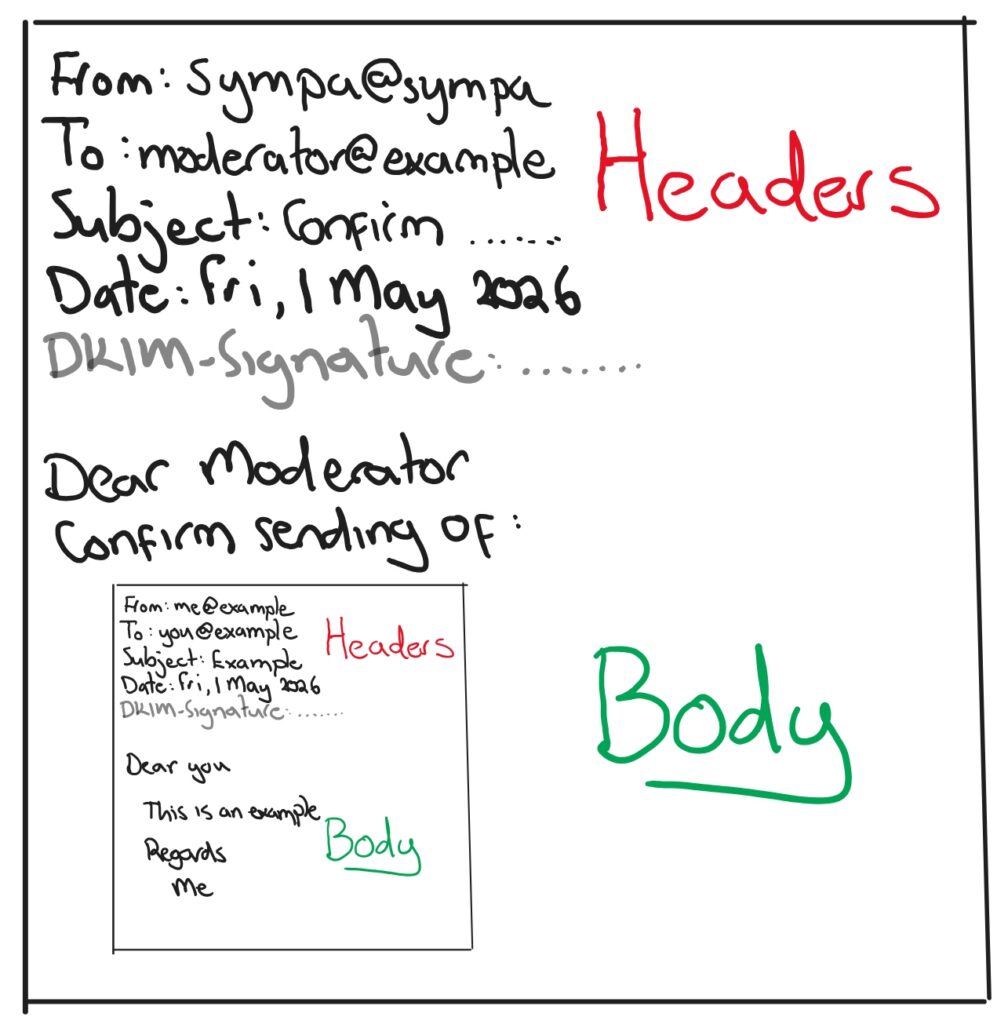 From: Sympa@sympa
To: moderator@example
Subject: Confirm ......
Date: Fri, 1 May 2026
DKIM-Signature: .......
Headers
Dear Moderator
Confirm sending of:
From: me@example
To: you@example
Subject: Example
Date: Fri, 1 May 2026
DKIM-Signature: .......
Headers
Dear you
This is an example
Regards
Me
Body
Body